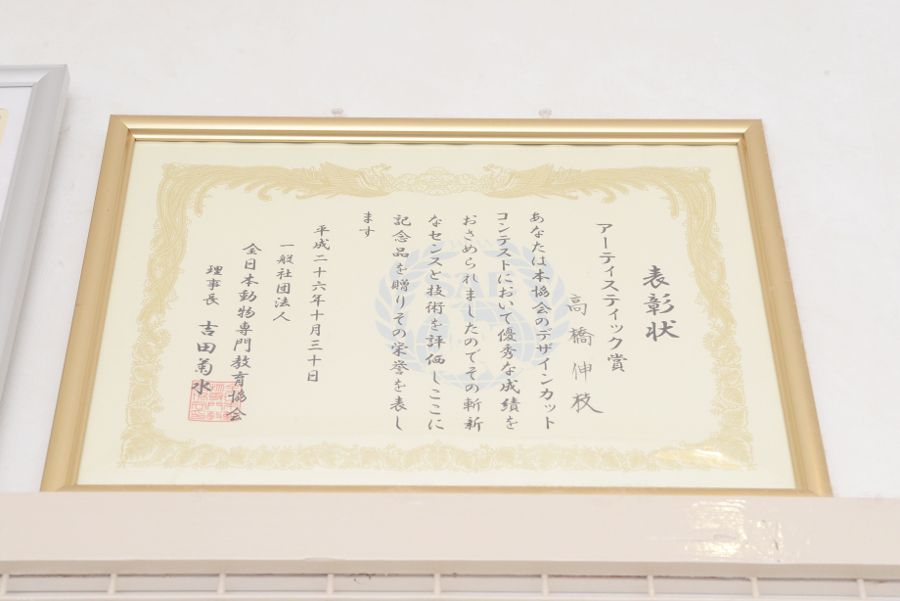 表彰状
アーティスティック賞
高橋伸枝
あなたは本協会のデザインカット
コンテストにおいて優秀な成績を
おさめられましたのでその斬新
なセンスと技術を評価しここに
記念品を贈りその栄誉を表し
ます
平成二十六年十月三十日
一般社団法人
全日本動物専門教育協会
理事長 吉田菊水